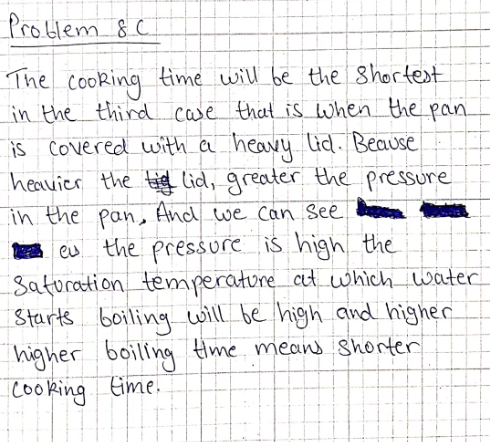 Problem 8 C
The cooking time will be the shortest
in the third case that is when the pan
is covered with a heavy lid. Beause
heavier the lid, greater the pressure
in the pan. And we can see
as the pressure is high the
saturation temperature at which water
starts boiling will be high and higher
higher boiling time means shorter
cooking time.